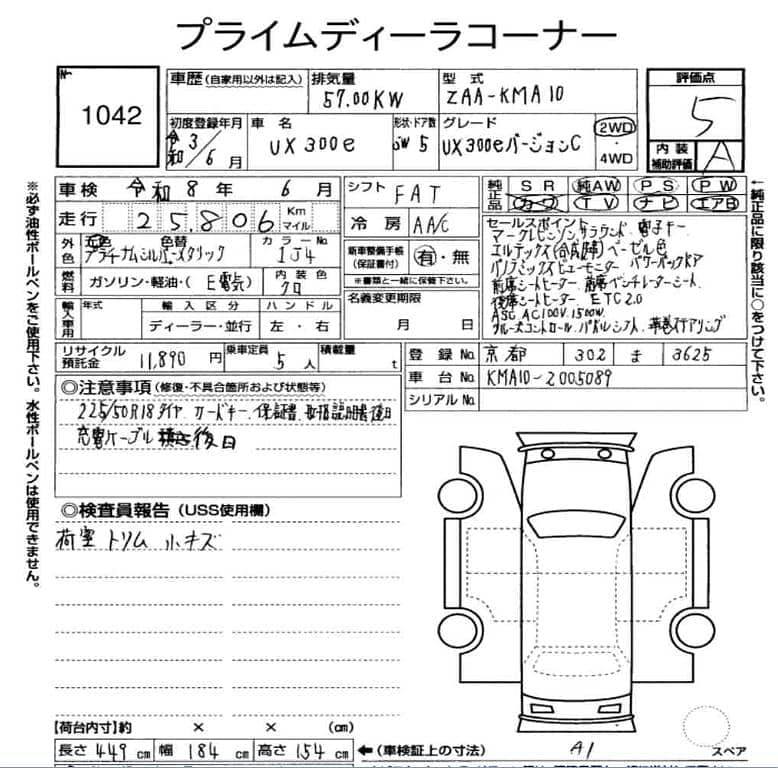 プライムディーラコーナー
1042
車歴 (自家用以外は記入) 排気量 57.00KW 型式 ZAA-KMA10
評価点 5
初度登録年月 令和 3年 6月 車名 UX300e 形状・ドア数 5 グレード UX300eバージョンC 2WD・4WD
内装補助評価 A
車検 令和 8年 6月 シフト FAT
純正品 SR 純AW PS PW
カーフ TV ナビ エアB
走行 25,806 Km マイル 冷房 AA/C
外色 元色 色替 カラーNo.
プラチナムシルバーメタリック 1J4
新車整備手帳(保証書付) 有・無
※書類と一緒に保管下さい。
燃料 ガソリン・軽油・( E電気) 内装色 クロ
名義変更期限 月 日
輸入車用 年式 輸入区分 ハンドル
ディーラー・並行 左・右
セールスポイント
マークレビンソンサラウンド 電子キー
エルテックス(合成皮革) ベーゼル色
パノラミックビューモニター パワーバックドア
前席シートヒーター 前席ベンチレーターシート
後席シートヒーター ETC2.0
ASC AC100V 1500W
クルーズコントロール パドルシフト 革巻ステアリング
リサイクル預託金 11,890 円 乗車定員 5 人 積載量 t
登録No. 京都 302 ま 3625
車台No. KMA10-2005089
シリアルNo.
◎注意事項 (修復・不具合箇所および状態等)
225/50R18タイヤ カードキー 保証書 取扱説明書後日
充電ケーブル 後日
◎検査員報告 (USS使用欄)
荷室トリム 小キズ
【荷台内寸】約 × × (cm)
長さ 449 cm 幅 184 cm 高さ 154 cm ←(車検証上の寸法)
A1
スペア
※必ず油性ボールペンをご使用下さい。水性ボールペンは使用できません。
←純正品に限り該当に○をつけて下さい。